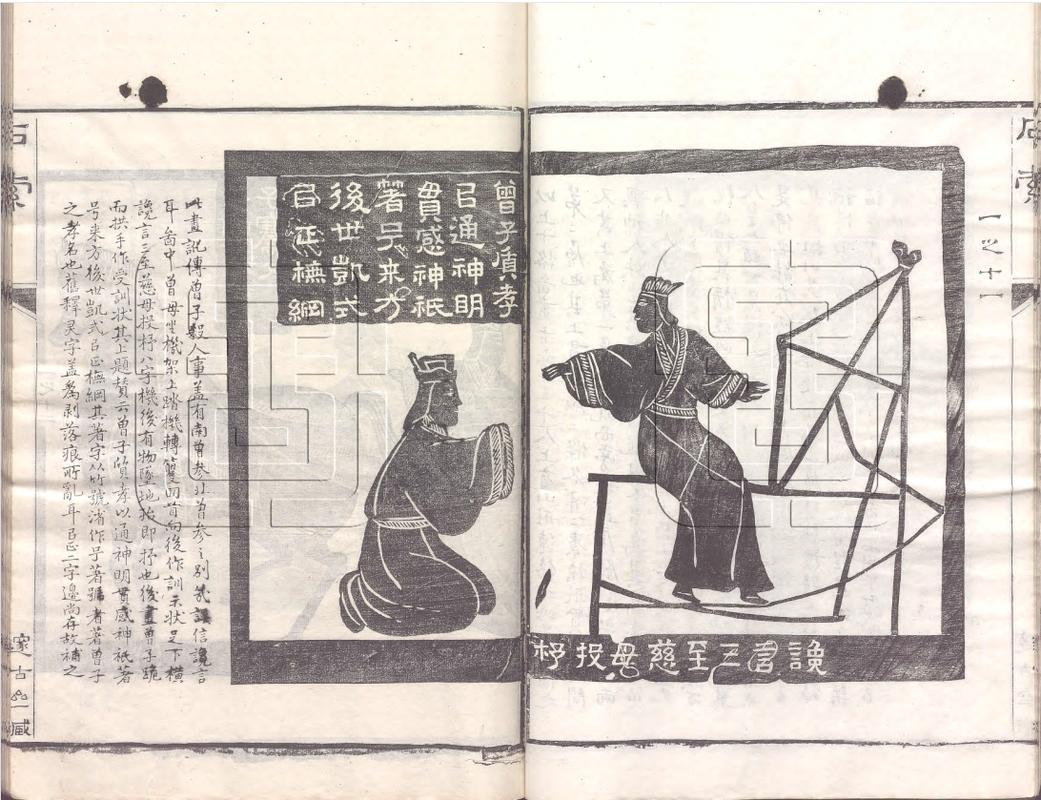 石索
【之十】
讒言三至慈母投杼
曾子質孝
㠯通神明
貫感神祇
著号来方
後世凱式
㠯正橅綱
此畫記傳曾子殺人事蓋有南曾參北曾參之別信讒言
耳畨中曾母坐機架上踏機轉聲回首向後作訓示狀足下橫
讒言三至慈母投杼八字機後有物墜地狀即杼也後畫曾子跪
而拱手作受訓狀其上題贊云曾子質孝以通神明貫感神祇著
号来方後世凱式㠯正橅綱其著字从竹號渻作号著號者著曾子
之孝名也舊釋灵字盖爲剥落痕所亂耳㠯正二字邊尚存故補之
石索